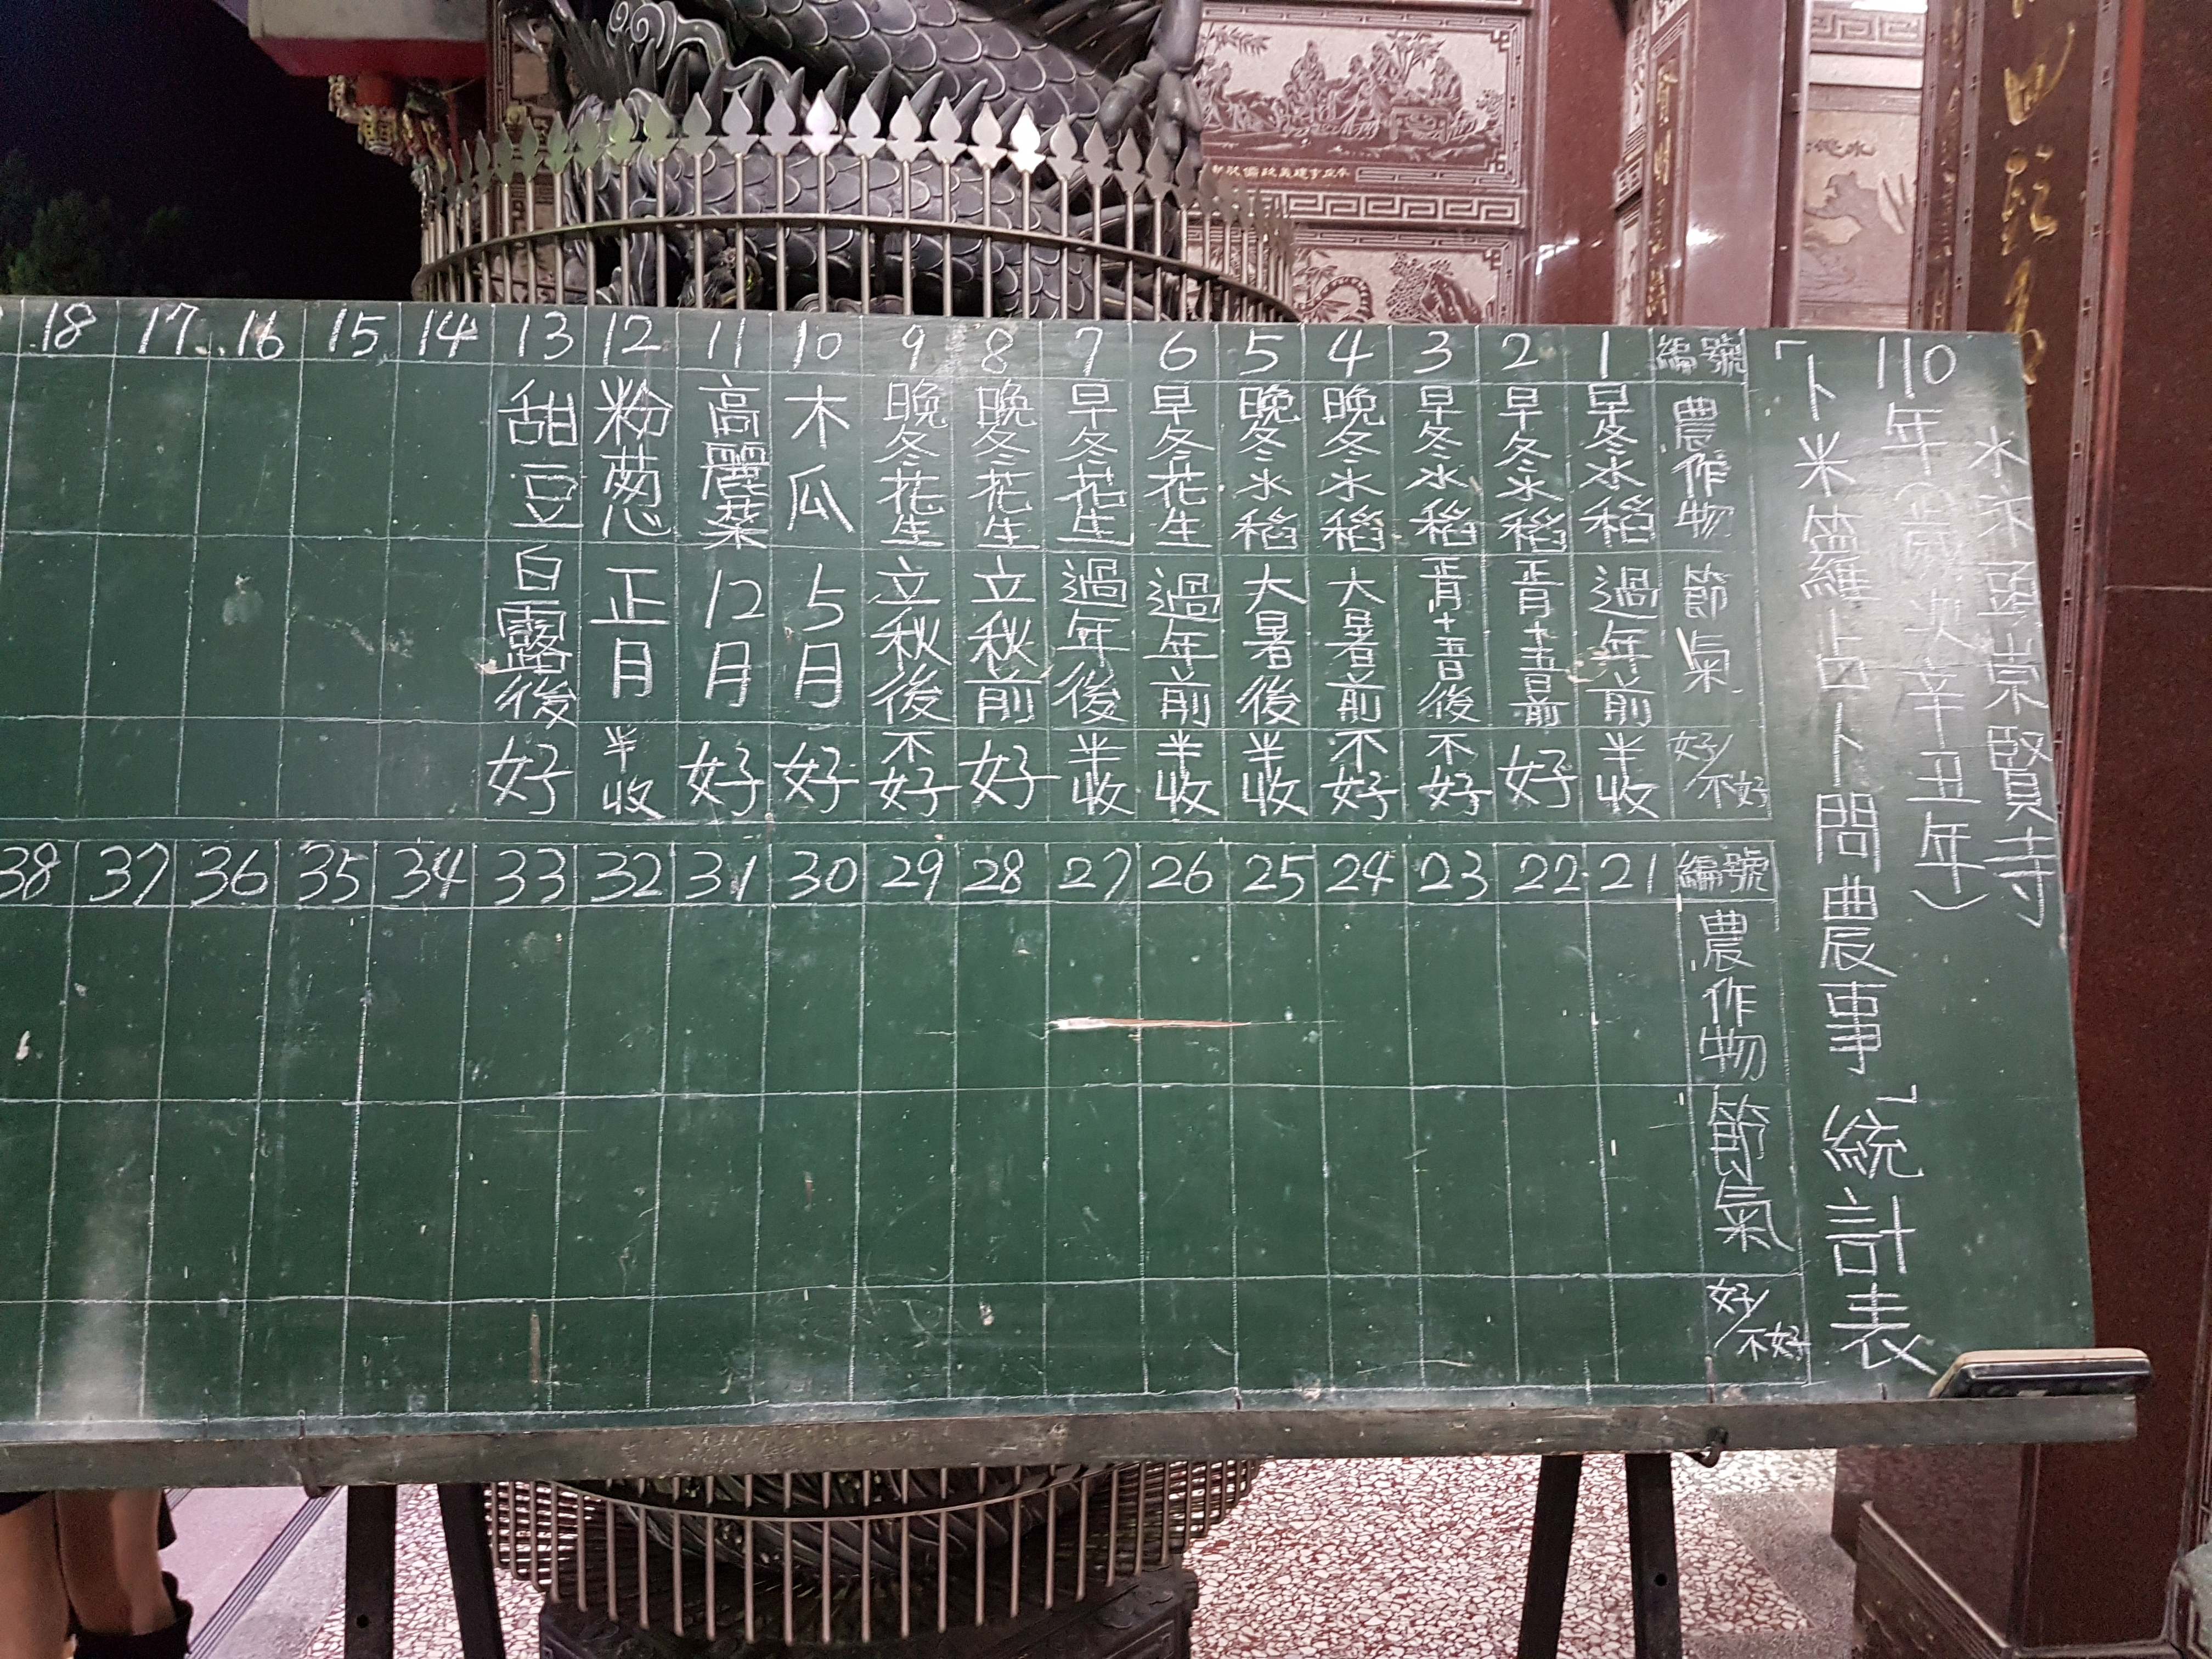 水汴頭崇賢寺
110年(歲次辛丑年)
「卜米籮占卜問農事」統計表
編號 農作物 節氣 好/不好
1 早冬水稻 過年前 半收
2 早冬水稻 正月十五日前 好
3 早冬水稻 正月十五日後 不好
4 晚冬水稻 大暑前 不好
5 晚冬水稻 大暑後 半收
6 早冬花生 過年前 半收
7 早冬花生 過年後 半收
8 晚冬花生 立秋前 好
9 晚冬花生 立秋後 不好
10 木瓜 5月 好
11 高麗菜 12月 好
12 粉蔥 正月 半收
13 甜豆 白露後 好
14
15
16
17
18
編號 農作物 節氣 好/不好
21
22
23
24
25
26
27
28
29
30
31
32
33
34
35
36
37
38